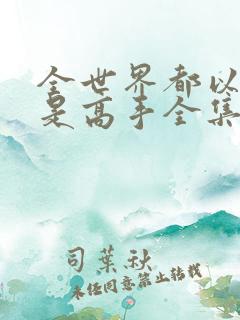 全世界都以
是高手全集
司葉秋
未经同意禁止转载